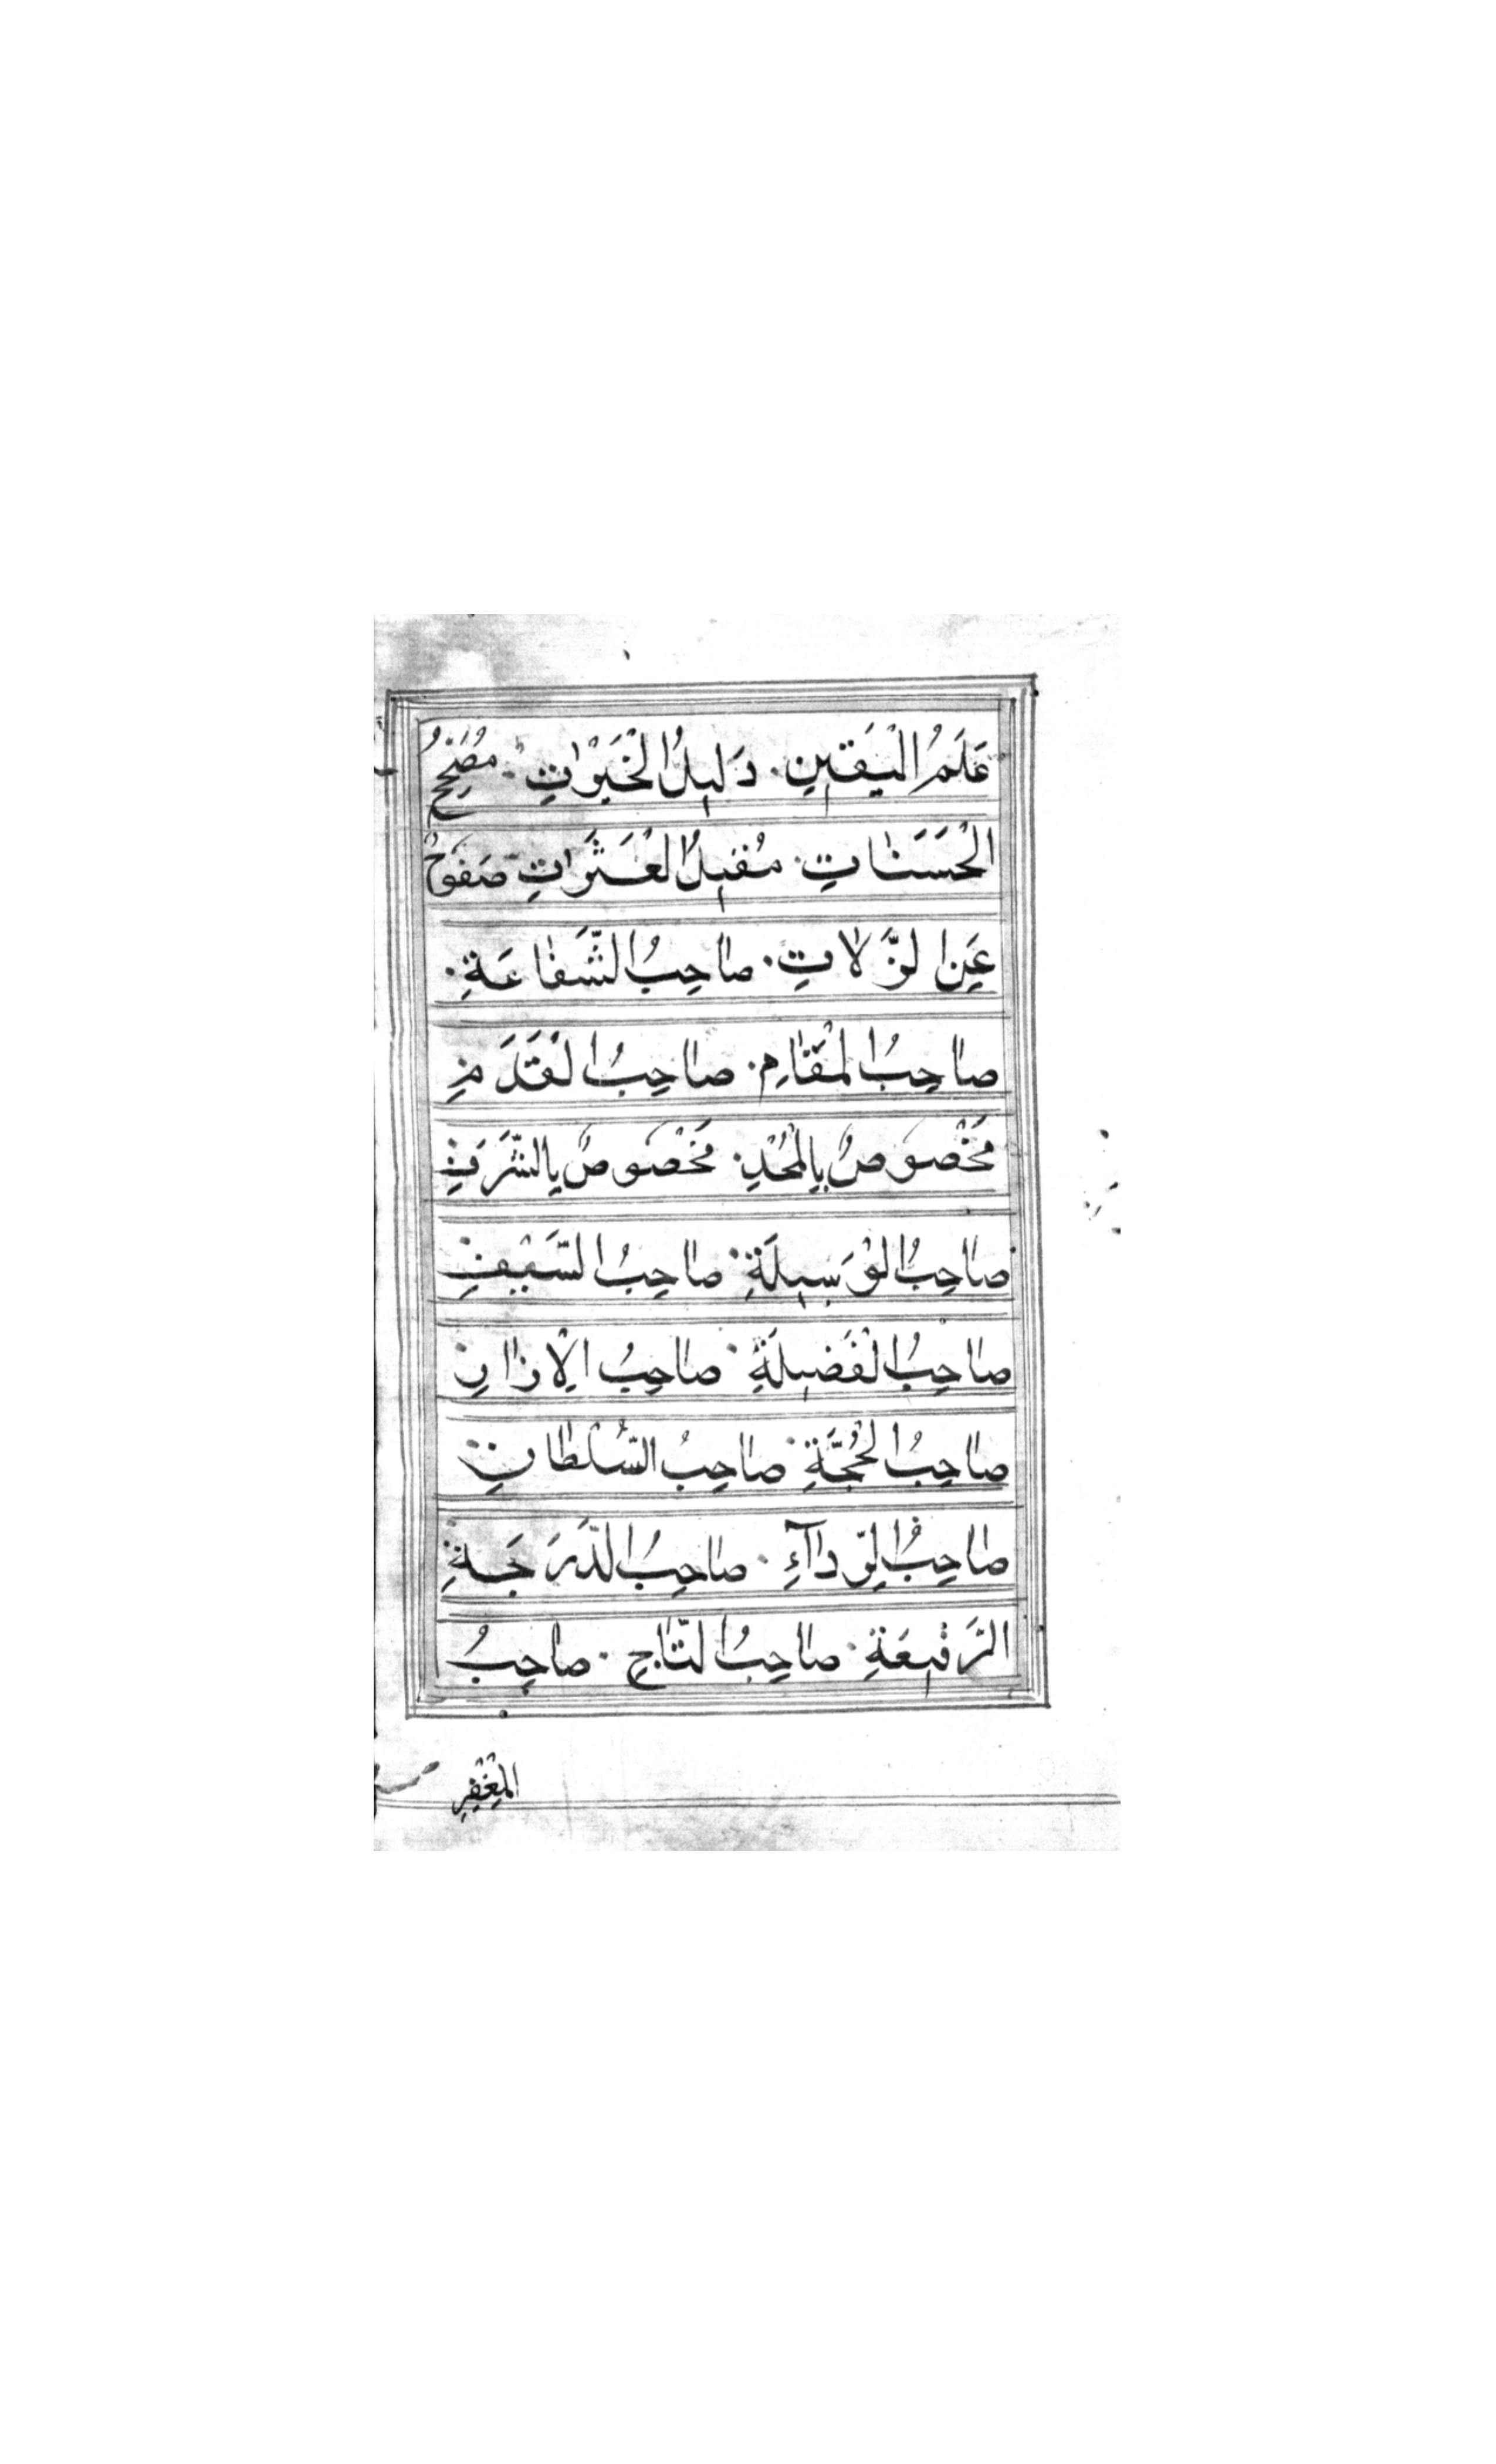 عَلَمُ الْيَقِينِ. دَلِيلُ الْخَيْرَاتِ. مُصَحِّحُ
الْحَسَنَاتِ. مُقِيلُ الْعَثَرَاتِ. صَفُوحٌ
عَنِ الزَّلَاتِ. صَاحِبُ الشَّفَاعَةِ.
صَاحِبُ الْمَقَامِ. صَاحِبُ الْقَدَمِ
مَخْصُوصٌ بِالْمَجْدِ. مَخْصُوصٌ بِالشَّرَفِ
صَاحِبُ الْوَسِيلَةِ. صَاحِبُ السَّيْفِ
صَاحِبُ الْفَضِيلَةِ. صَاحِبُ الْاِزَارِ
صَاحِبُ الْحُجَّةِ. صَاحِبُ السُّلْطَانِ
صَاحِبُ الرِّدَآءِ. صَاحِبُ الدَّرَجَةِ
الرَّفِيعَةِ. صَاحِبُ التَّاجِ. صَاحِبُ
الْمِغْفِرِ